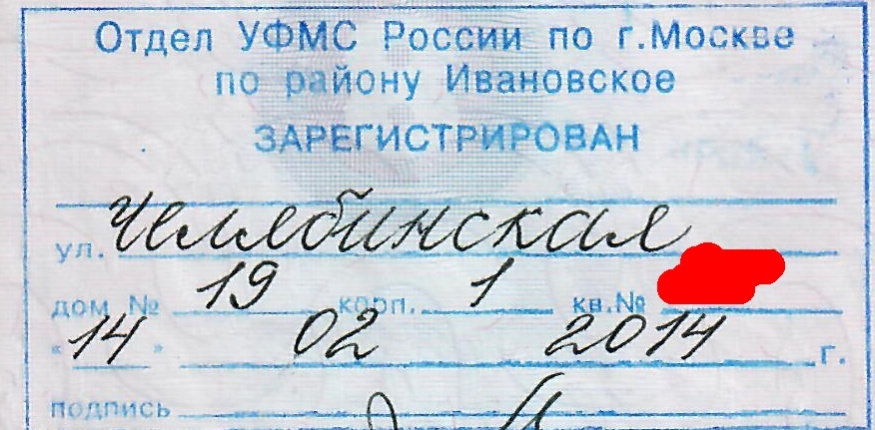 Отдел УФМС России по г.Москве
по району Ивановское
ЗАРЕГИСТРИРОВАН
ул. Челябинская
дом № 19 корп. 1 кв.№
"14" 02 2014 г.
подпись